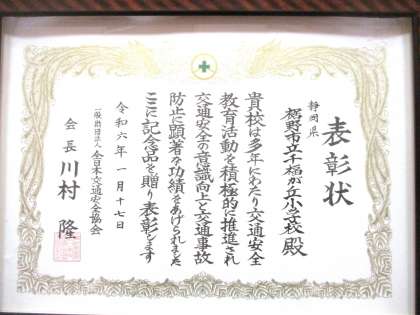 表彰状
静岡県
裾野市立千福が丘小学校殿
貴校は多年にわたり交通安全
教育活動を積極的に推進され
交通安全の意識向上と交通事故
防止に顕著な功績をあげられました
ここに記念品を贈り表彰します
令和六年一月十七日
一般財団法人全日本交通安全協会
会長川村隆